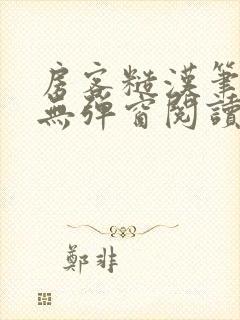 房客糙漢筆
無彈窗閱讀
鄭非